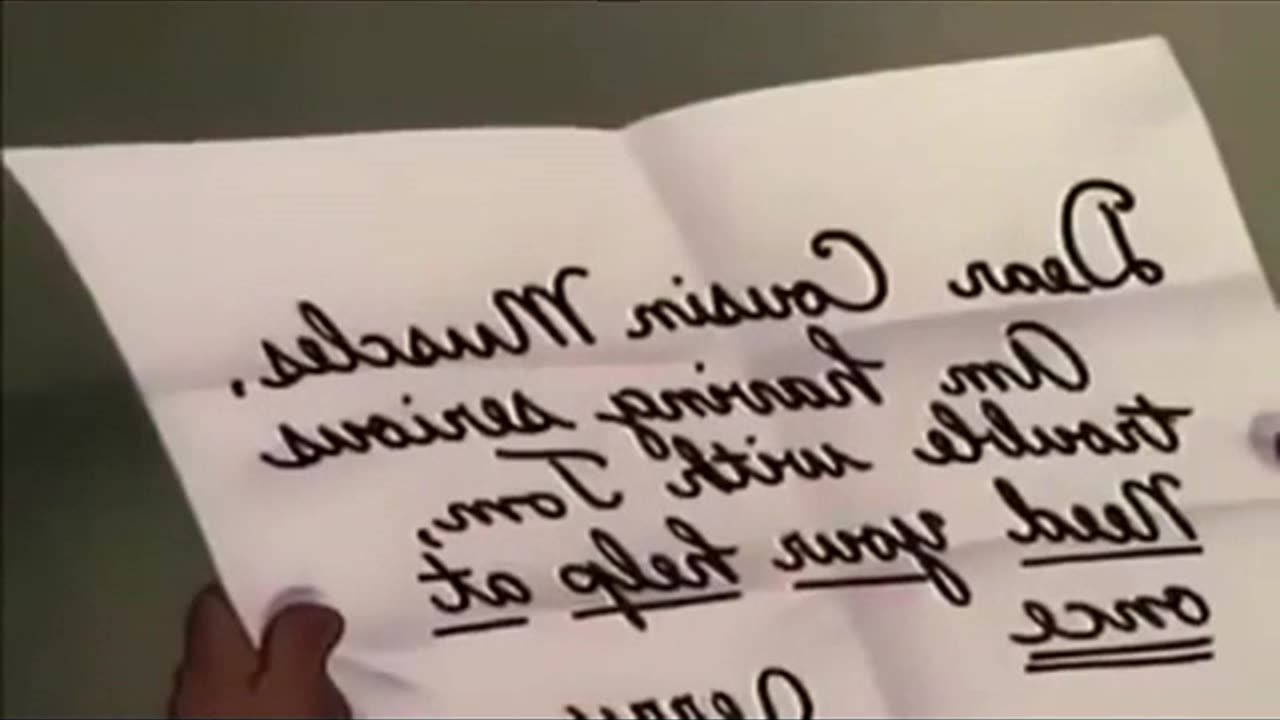 Dear Cousin Muscles,
Am having serious
trouble with Tom,
Need your help at
once
Jerry